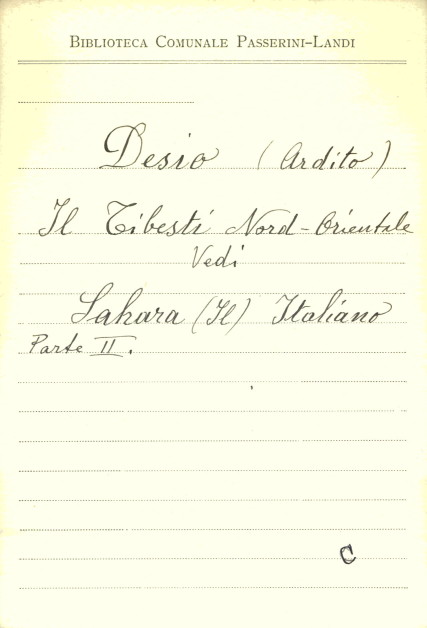 BIBLIOTECA COMUNALE PASSERINI-LANDI
Desio (Ardito)
Il Tibesti Nord-Orientale
Vedi
Sahara (Il) Italiano
Parte II.
C